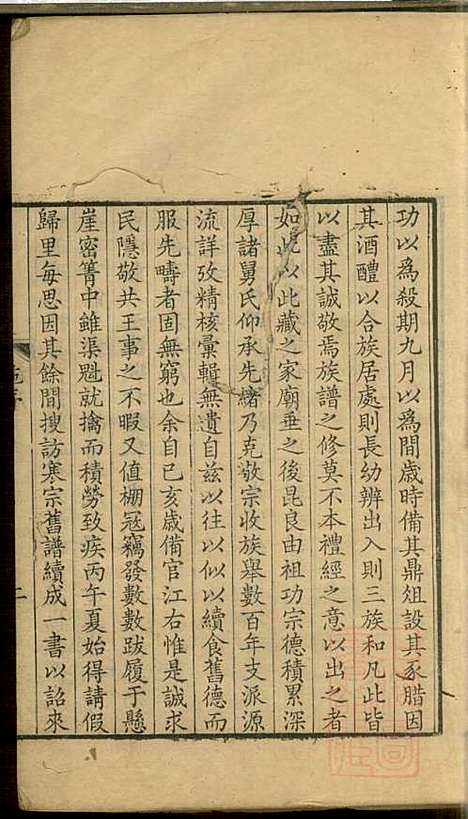 功以為殺期九月以為間歲時備其鼎俎設其豕腊因
其酒醴以合族居處則長幼辨出入則三族和凡此皆
以盡其誠敬焉族譜之修莫不本禮經之意以出之者
如此以此藏之家廟垂之後昆良由祖功宗德積累深
厚諸舅氏仰承先緒乃克敬宗收族舉數百年支派源
流詳攷精核彙輯無遺自茲以往以似以續食舊德而
服先疇者固無窮也余自己亥歲備官江右惟是誠求
民隱敬共王事之不暇又值棚冦竊發數數跋履于懸
崖密箐中雖渠魁就擒而積勞致疾丙午夏始得請假
歸里每思因其餘間搜訪寒宗舊譜續成一書以詔來